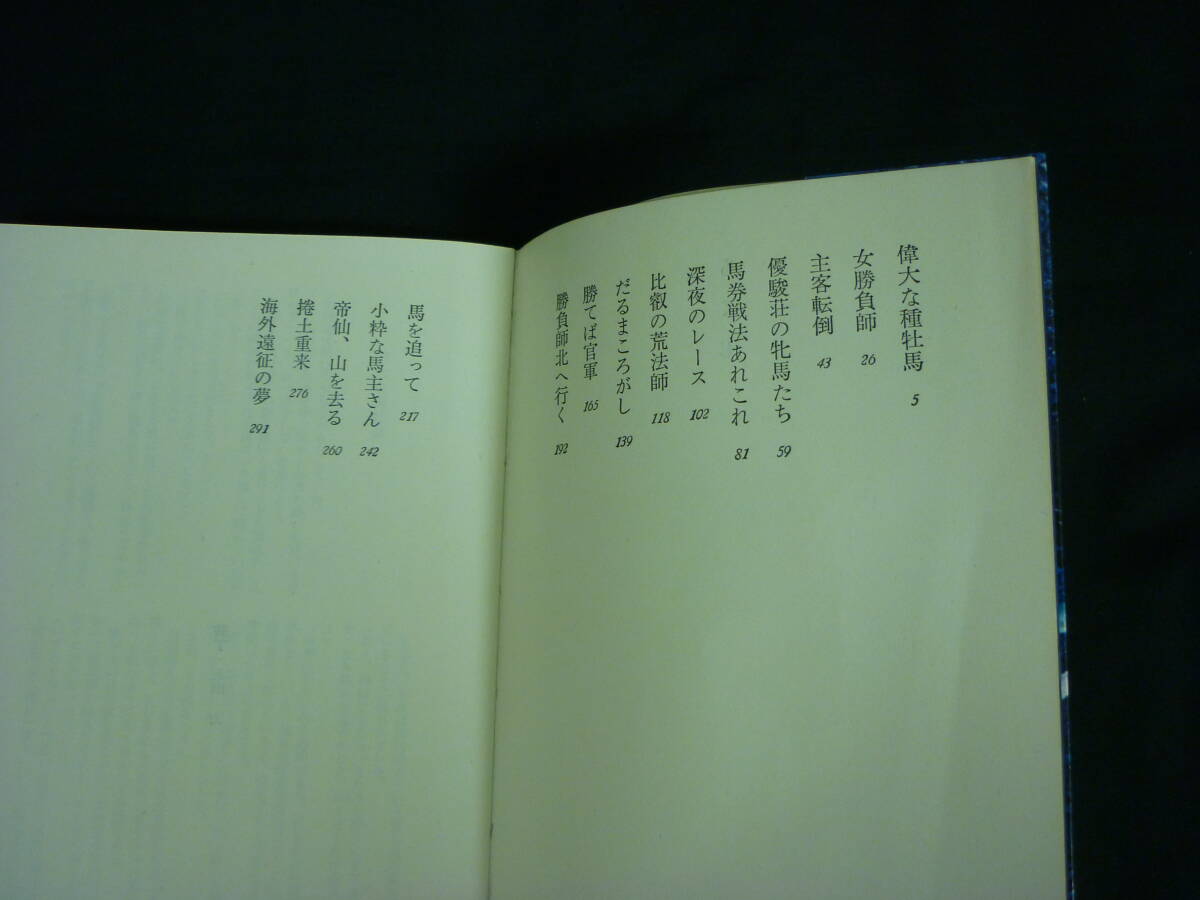 偉大な種牡馬 5
女勝負師 26
主客転倒 43
優駿荘の牝馬たち 59
馬券戦法あれこれ 81
深夜のレース 102
比叡の荒法師 118
だるまころがし 139
勝てば官軍 165
勝負師北へ行く 192
馬を追って 217
小粋な馬主さん 242
帝仙、山を去る 260
捲土重来 276
海外遠征の夢 291